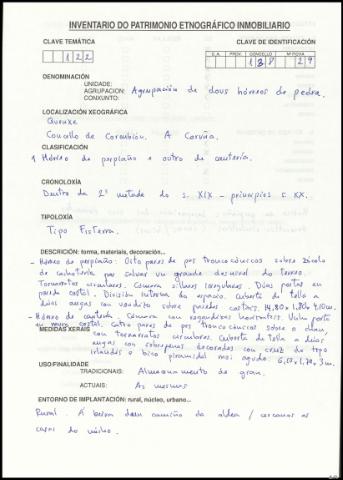 INVENTARIO DO PATRIMONIO ETNOGRÁFICO INMOBILIARIO
CLAVE TEMÁTICA
CLAVE DE IDENTIFICACIÓN
C.A. PROV. CONCELLO Nº FICHA
1 2 2
1 3 8 2 9
DENOMINACIÓN
UNIDADE:
AGRUPACIÓN: Agrupación de dous hórreos de pedra.
CONXUNTO:
LOCALIZACIÓN XEOGRÁFICA
Queuxe
Concello de Corcubión. A Coruña.
CLASIFICACIÓN
1 Hórreo de perpiaño e outro de cantería.
CRONOLOXÍA
Dentro da 2ª metade do s. XIX - principios s. XX.
TIPOLOXÍA
Tipo Fisterra.
DESCRICIÓN: forma, materiais, decoración...
- Hórreo de perpiaño: Oito pares de pes troncocónicos sobre zócalo
de cachotería por salvar un grande desnivel do terreo.
Tornarratos circulares. Cámara sillares irregulares. Dúas portas en
parede costal. División interna do espacio. Cuberta de tella a
dúas augas con voadizo sobre paredes costais. 14,80 x 1,80 x 4,10m.
- Hórreo de cantería: Cámara con resgardixas horizontais. Unha porta
en muro costal. Catro pares de pes troncocónicos sobre o chan,
MEDIDAS XERAIS
con tornarratos circulares. Cuberta de tella a dúas
augas con sobrepenas decoradas con cruz de tipo
e bico piramidal moi agudo. 6,17 x 1,70 x 3m.
USO/FINALIDADE
TRADICIONAIS: Almacenamento de gran.
ACTUAIS: As mesmas
ENTORNO DE IMPLANTACIÓN: rural, núcleo, urbano...
Rural. Á beira dun camiño da aldea / cercanos as
casas do núcleo.